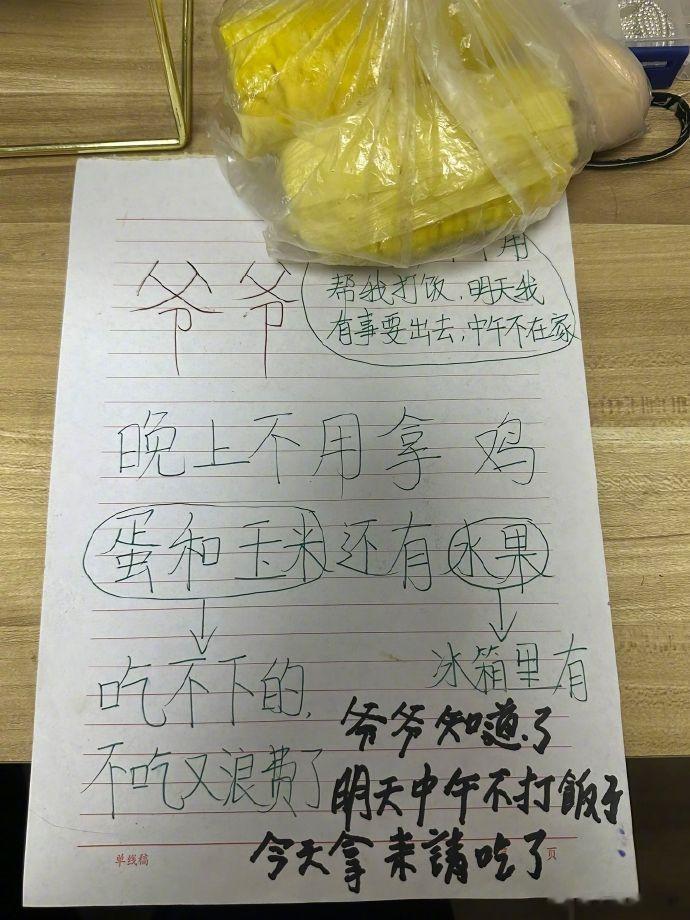 爷爷
用
帮我打饭,明天我
有事要出去,中午不在家
晚上不用拿鸡
蛋和玉米还有水果
吃不下的,
不吃又浪费了
冰箱里有
爷爷知道.了
明天中午不打飯了
今天拿来請吃了
单线稿
页